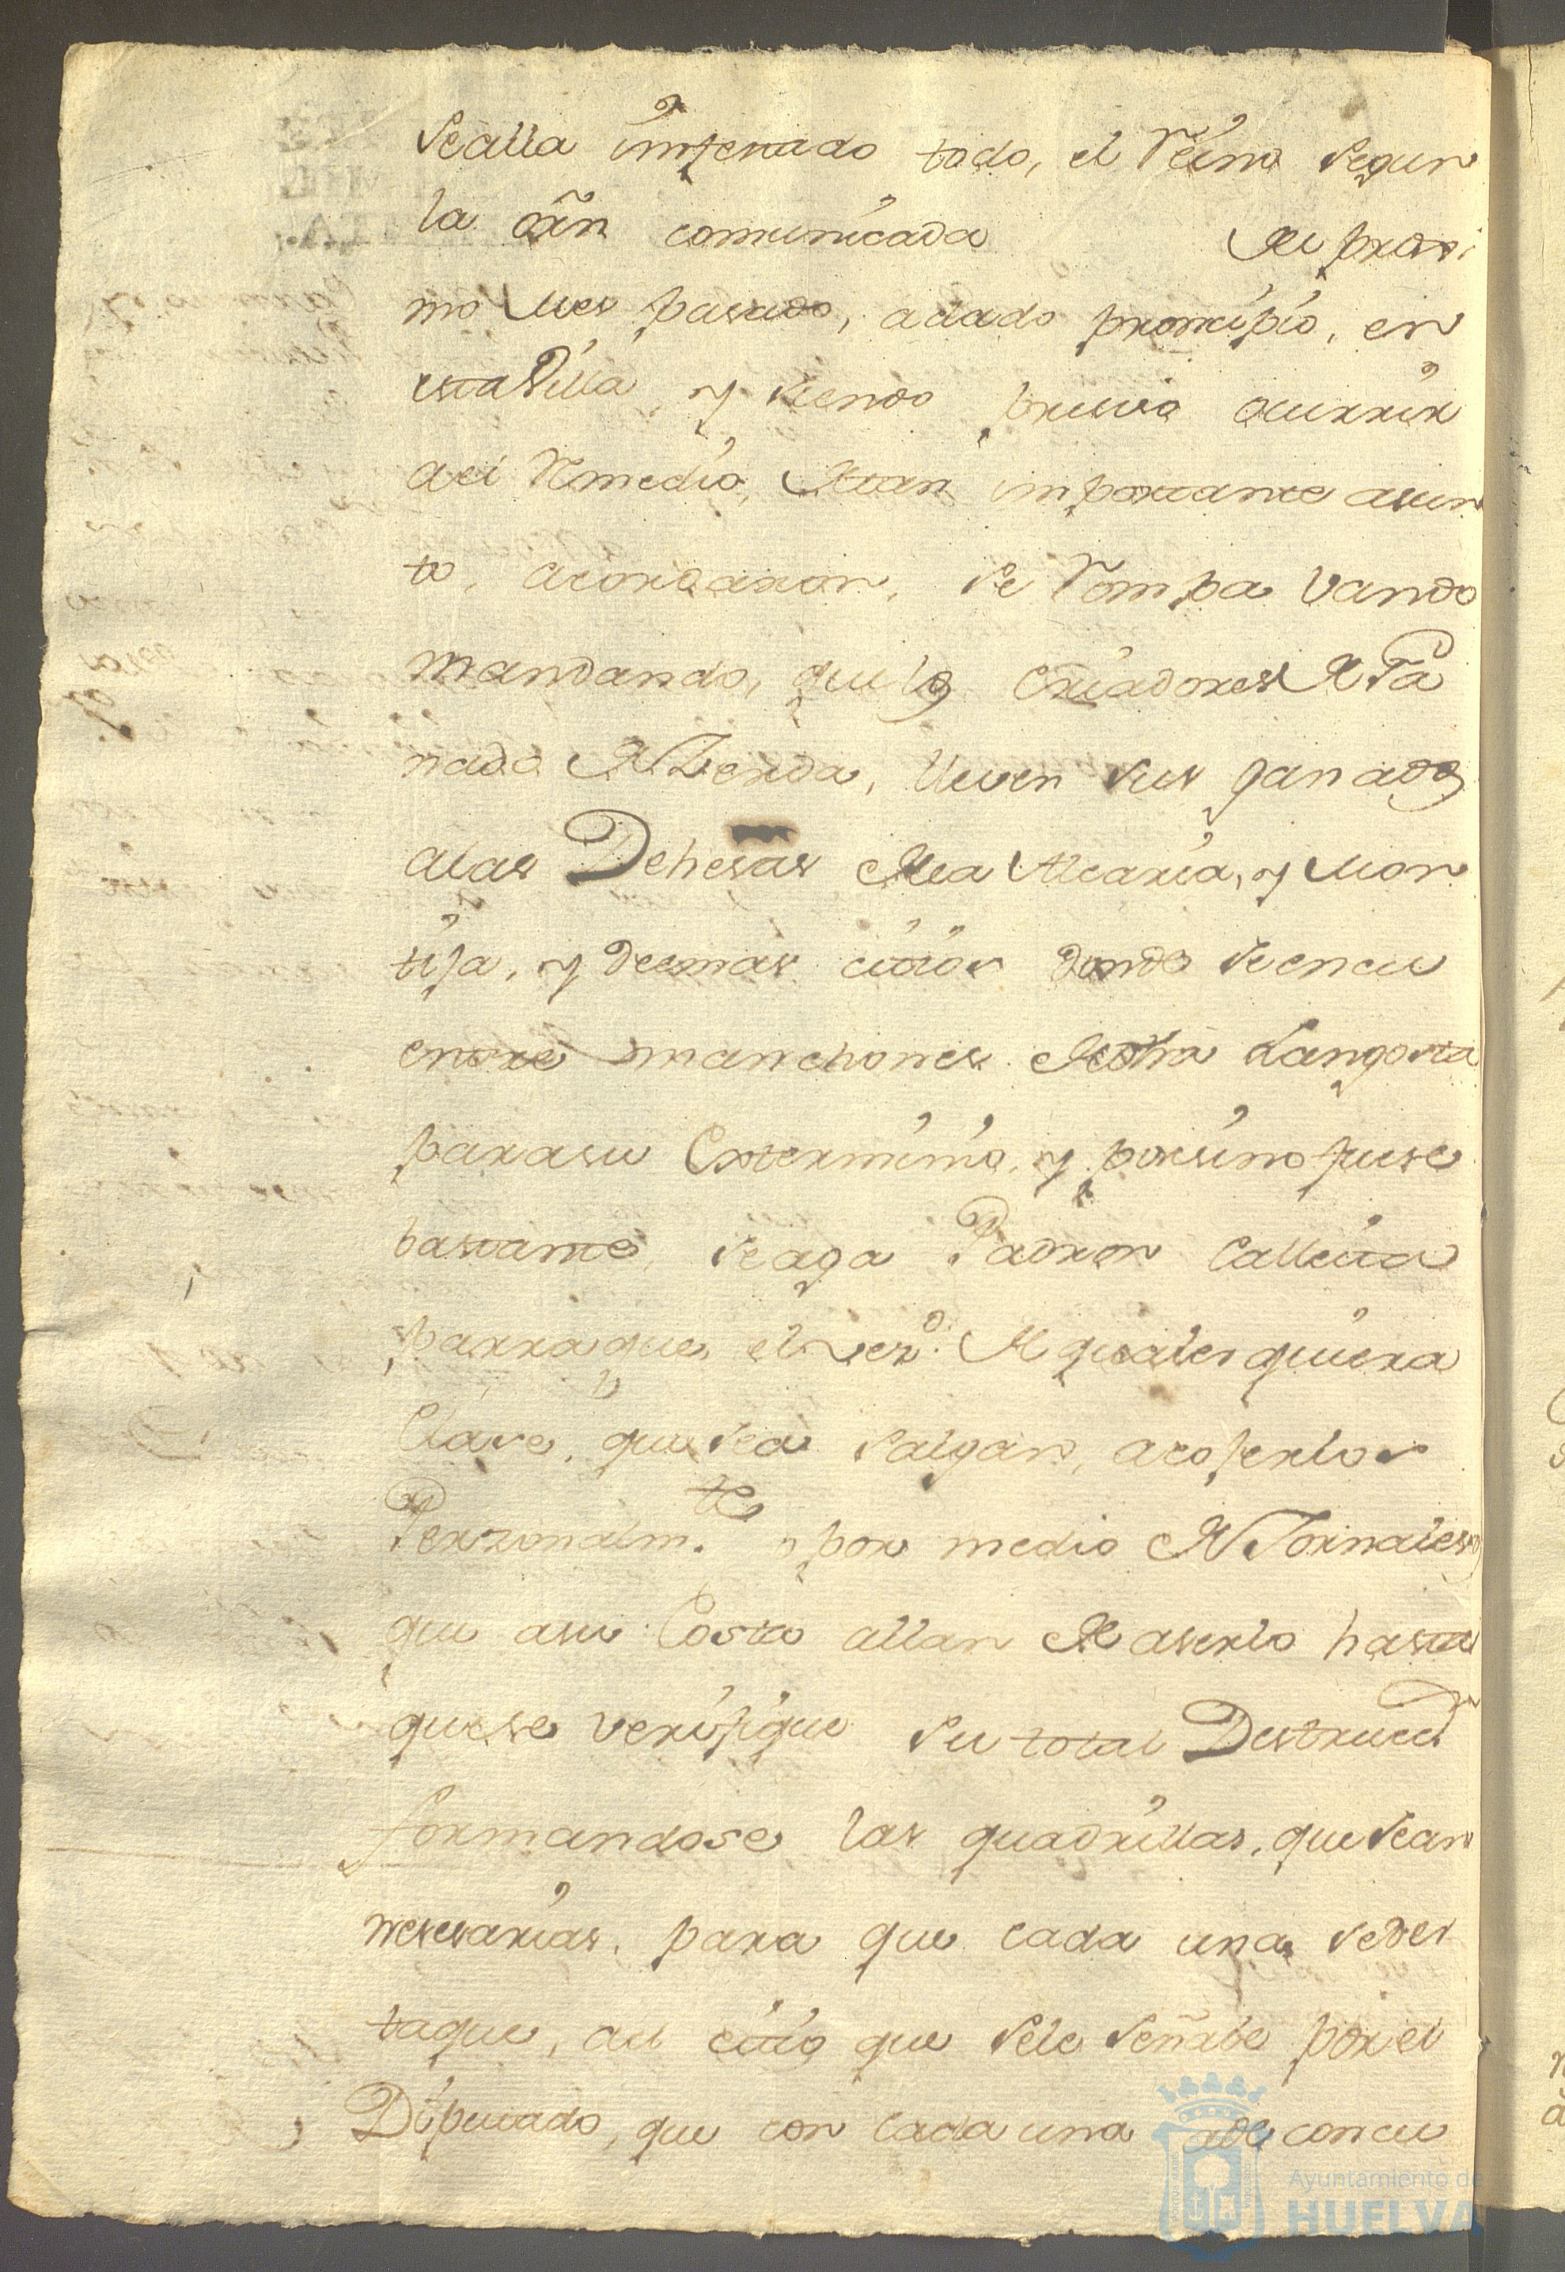 seálla imfestado todo, el Reino segun
la orn comunicada del procsi
mo Mes pasado, adado proncipio, en
esta Villa, y siendo presiso ocurrir
ael Remedio, detan importante asun
to, acordaron, se Rompa vando
mandando, que los Criadores de Ga
nado de Zerda, lleven sus ganados
alas Dehesas dela Alcaria, y Mon
tija, y deemas citios donde seencu
entre manchones desta Langosta
parasu Exterminio, y porsino fuese
bastante, seaga Padron Calleita
parraque, el vezo. de qualesquiera
Clase, que sea salgan, acojerlos
Perzonalmte. y por medio de Jornales,
que asu Costa allan de aserlo hasta
quese verifique su total Destrucn.
formandose las quadrillas, que sean
nesesarias, para que cada una sedes
taque, ael citio que sele señale por el
Diputado, que con cada una ade concu
Ayuntamiento de
HUELVA